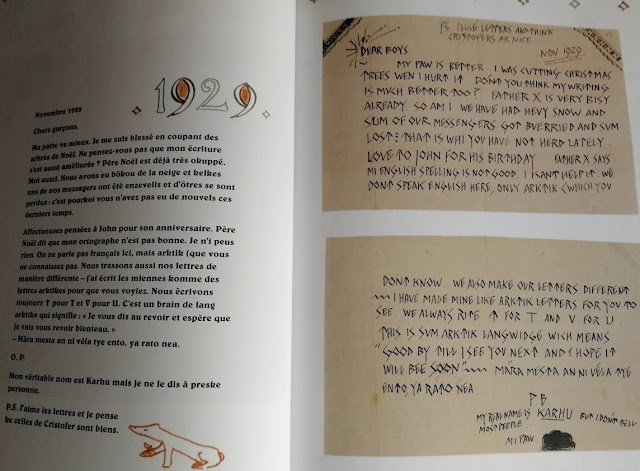 1929
Novembre 1929
Chers garçons,
Ma patte va mieux. Je me suis blessé en coupant des
arbres de Noël. Ne pensez-vous pas que mon écriture
s'est aussi améliorée ? Père Noël est déjà très okuppé.
Moi aussi. Nous avons eu bôkou de la neige et kelkes
uns de nos messagers ont été enzevelis et d'ôtres se sont
perdus : c'est pourkoi vous n'avez pas eu de nouvels ces
derniers temps.
Affectueuses pensées à John pour son anniversaire. Père
Noël dit que mon ortographe n'est pas bonne. Je n'i peus
rien. On ne parle pas français ici, mais arktik (que vous
ne connaissez pas. Nous trassons aussi nos lettres de
manière différente – j'ai écrit les miennes komme des
lettres arktikes pour que vous voyiez. Nous écrivons
toujours ↑ pour T et V pour U. C'est un brain de lang
arktike qui signifie : « Je vous dis au revoir et espère que
je vais vous revoir bienteau. »
– Mára mesta an ni véla tye ento, ya rato nea.
O. P.
Mon véritable nom est Karhu mais je ne le dis à preske
personne.
P.S. J'aime les lettres et je pense
ke celles de Cristofer sont biens.
PS I LIKE LETTERS AND THINK
CRISTOFERS AR NICE
DEAR BOYS
NOV 1929
MY PAW IS BETTER. I WAS CUTTING CHRISTMAS
TREES WEN I HURT IT. DONT YOU THINK MY WRITING
IS MUCH BETTER TOO? FATHER X IS VERY BISY
ALREADY SO AM I WE HAVE HAD HEVY SNOW AND
SUM OF OUR MESSENGERS GOT BVERRIED AND SUM
LOST: THAT IS WHI YOU HAVE NOT HERD LATELY.
LOVE TO JOHN FOR HIS BIRTHDAY FATHER X SAYS
MI ENGLISH SPELLING IS NOT GOOD. I KANT HELP IT. WE
DONT SPEAK ENGLISH HERE, ONLY ARKTIK (WHICH YOU
DONT KNOW WE ALSO MAKE OUR LETTERS DIFFERENT
— I HAVE MADE MINE LIKE ARKTIK LETTERS FOR YOU TO
SEE WE ALWAYS RITE ↑ FOR T AND V FOR U.
THIS IS SUM ARKTIK LANGWIDGE WICH MEANS
"GOOD BY TILL I SEE YOU NEXT AND I HOPE IT
WILL BEE SOON" — MÁRA MESTA AN NI VÉLA TYE
ENTO, YA RATO NEA
P.B.
MY REAL NAME IS KARHU BUT I DON'T TELL
MOST PEEPLE.
MI PAW